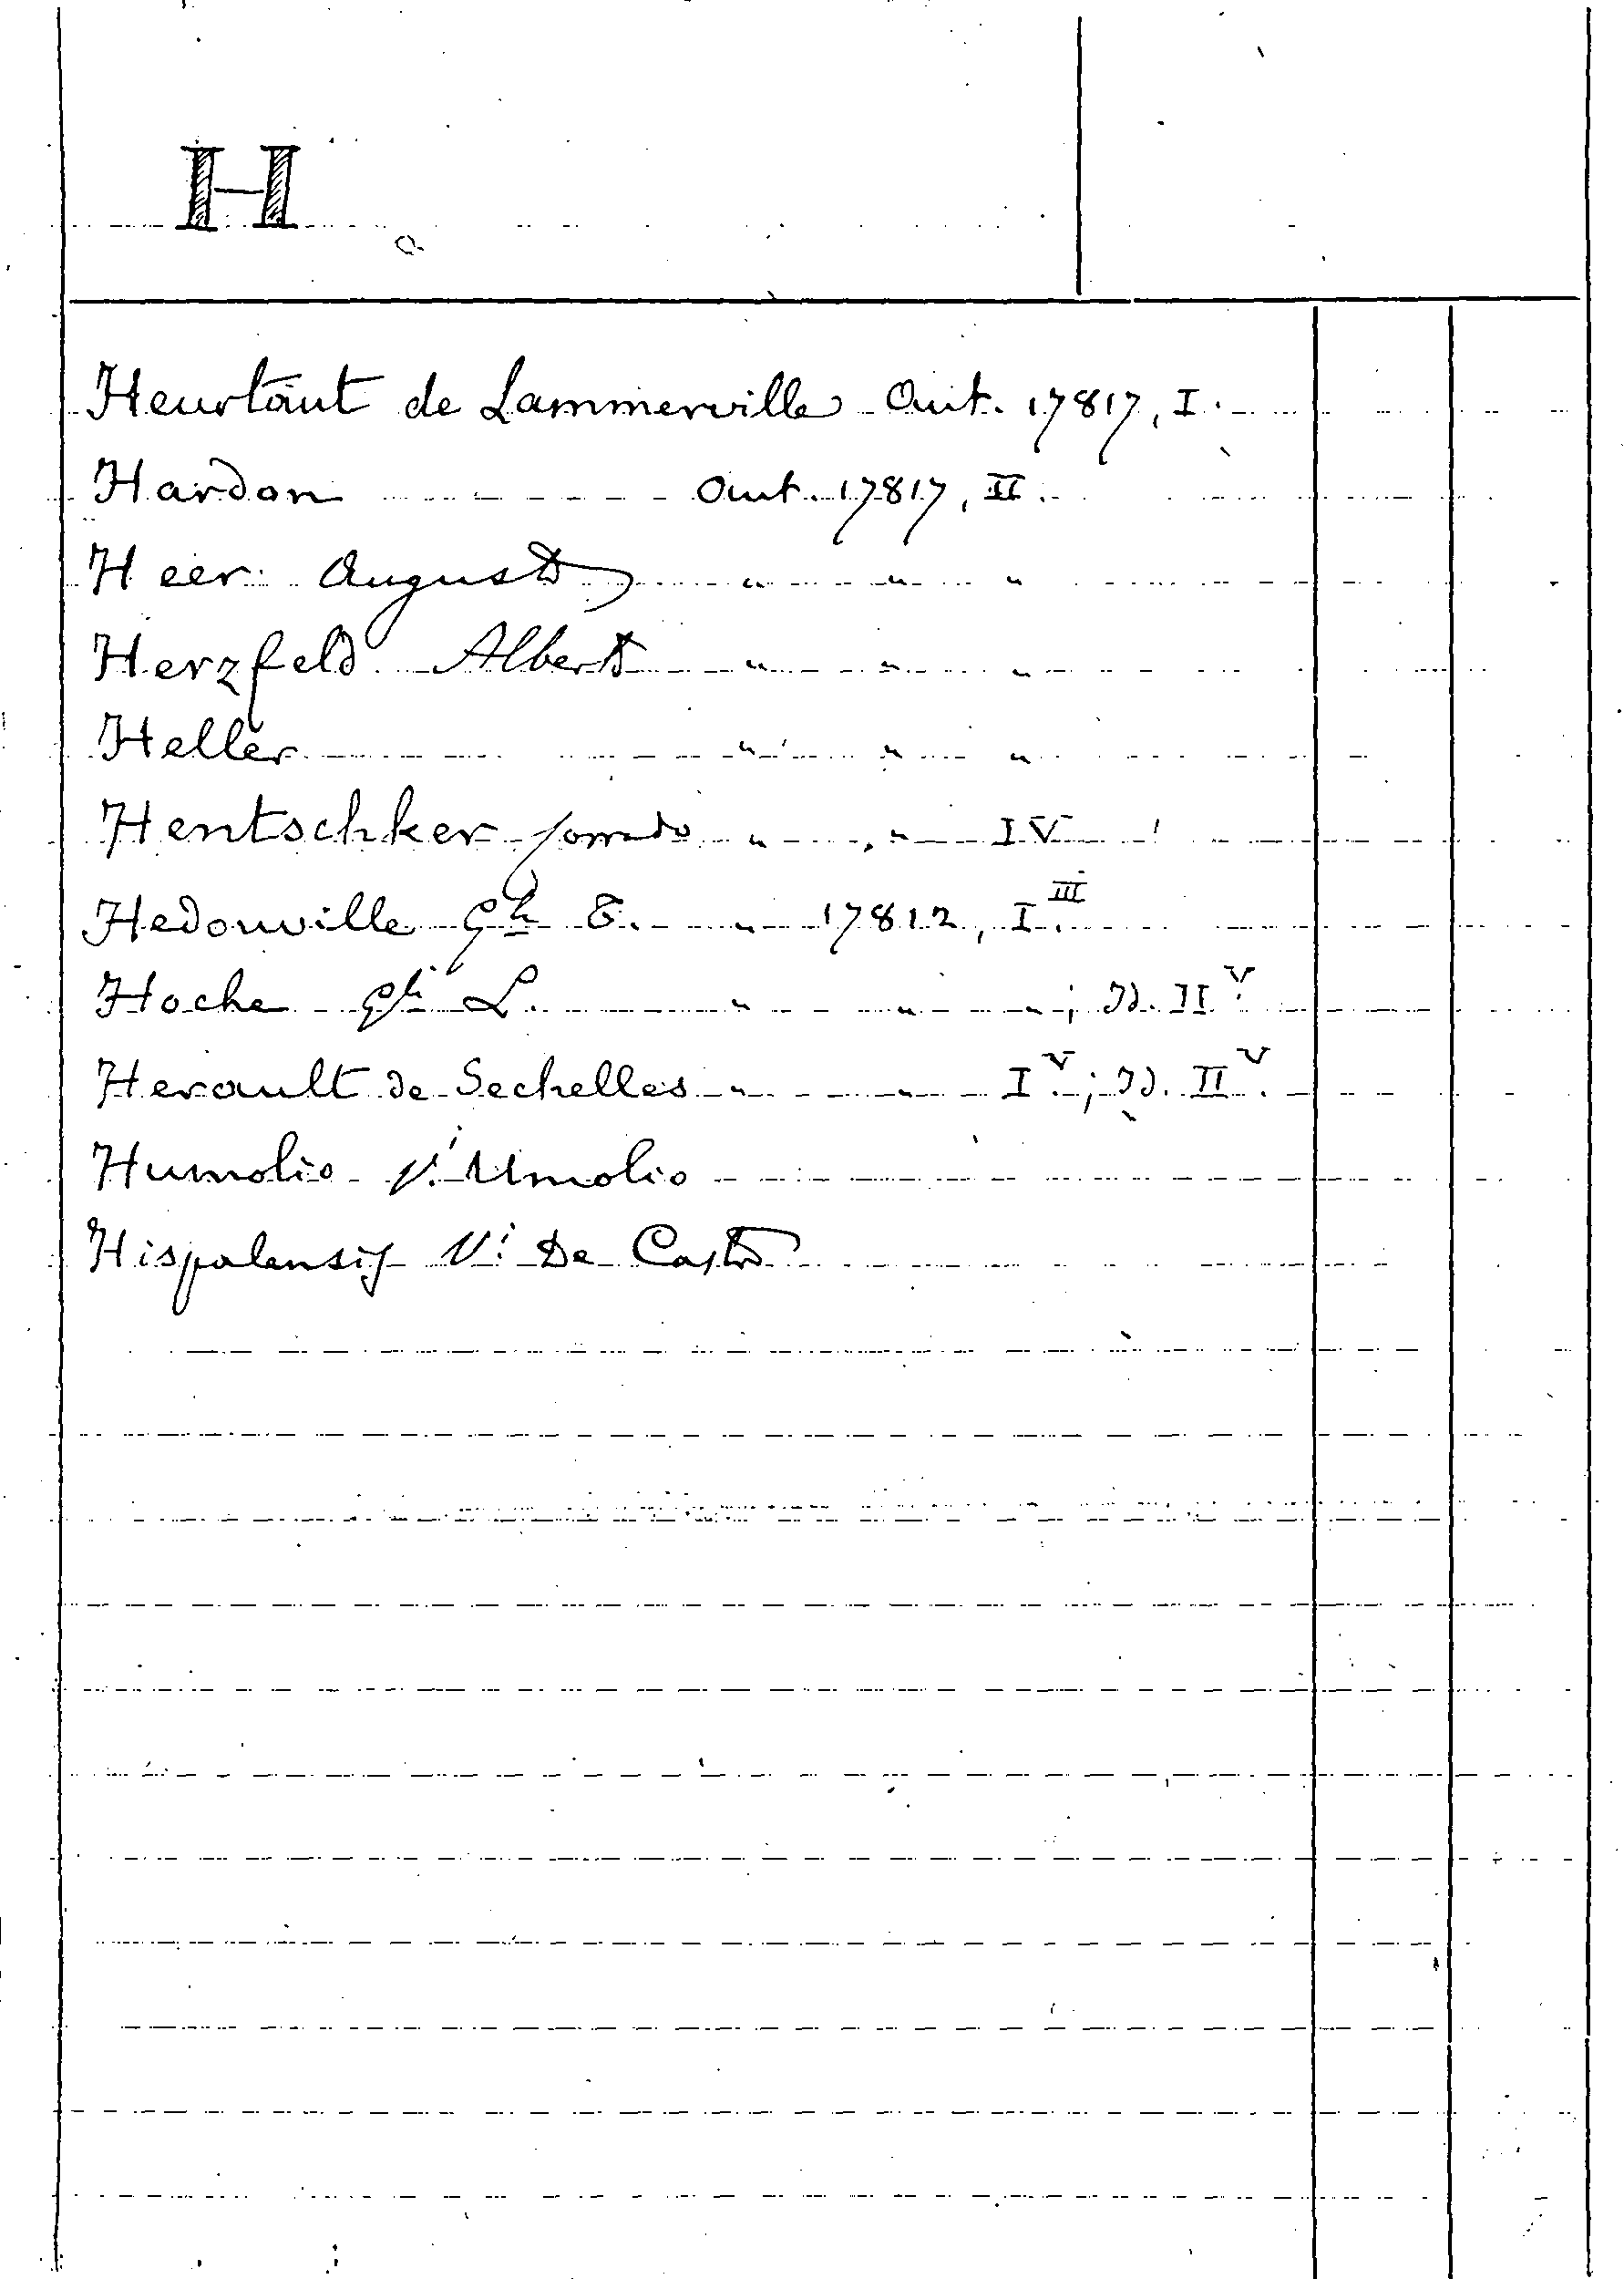 H
Heurtaut de Lammerville Aut. 17817, I.
Hardon Aut. 17817, II.
Heer August " " "
Herzfeld Albert " " "
Heller " " "
Hentschker " " IV
Hedouville Gl. T. " 17812, I.III
Hoche Gl. L. " " " ; Id. II.V
Herault de Sechelles " " I.V ; Id. II.V
Humolio V. Umolio
Hispalensis V. De Castro